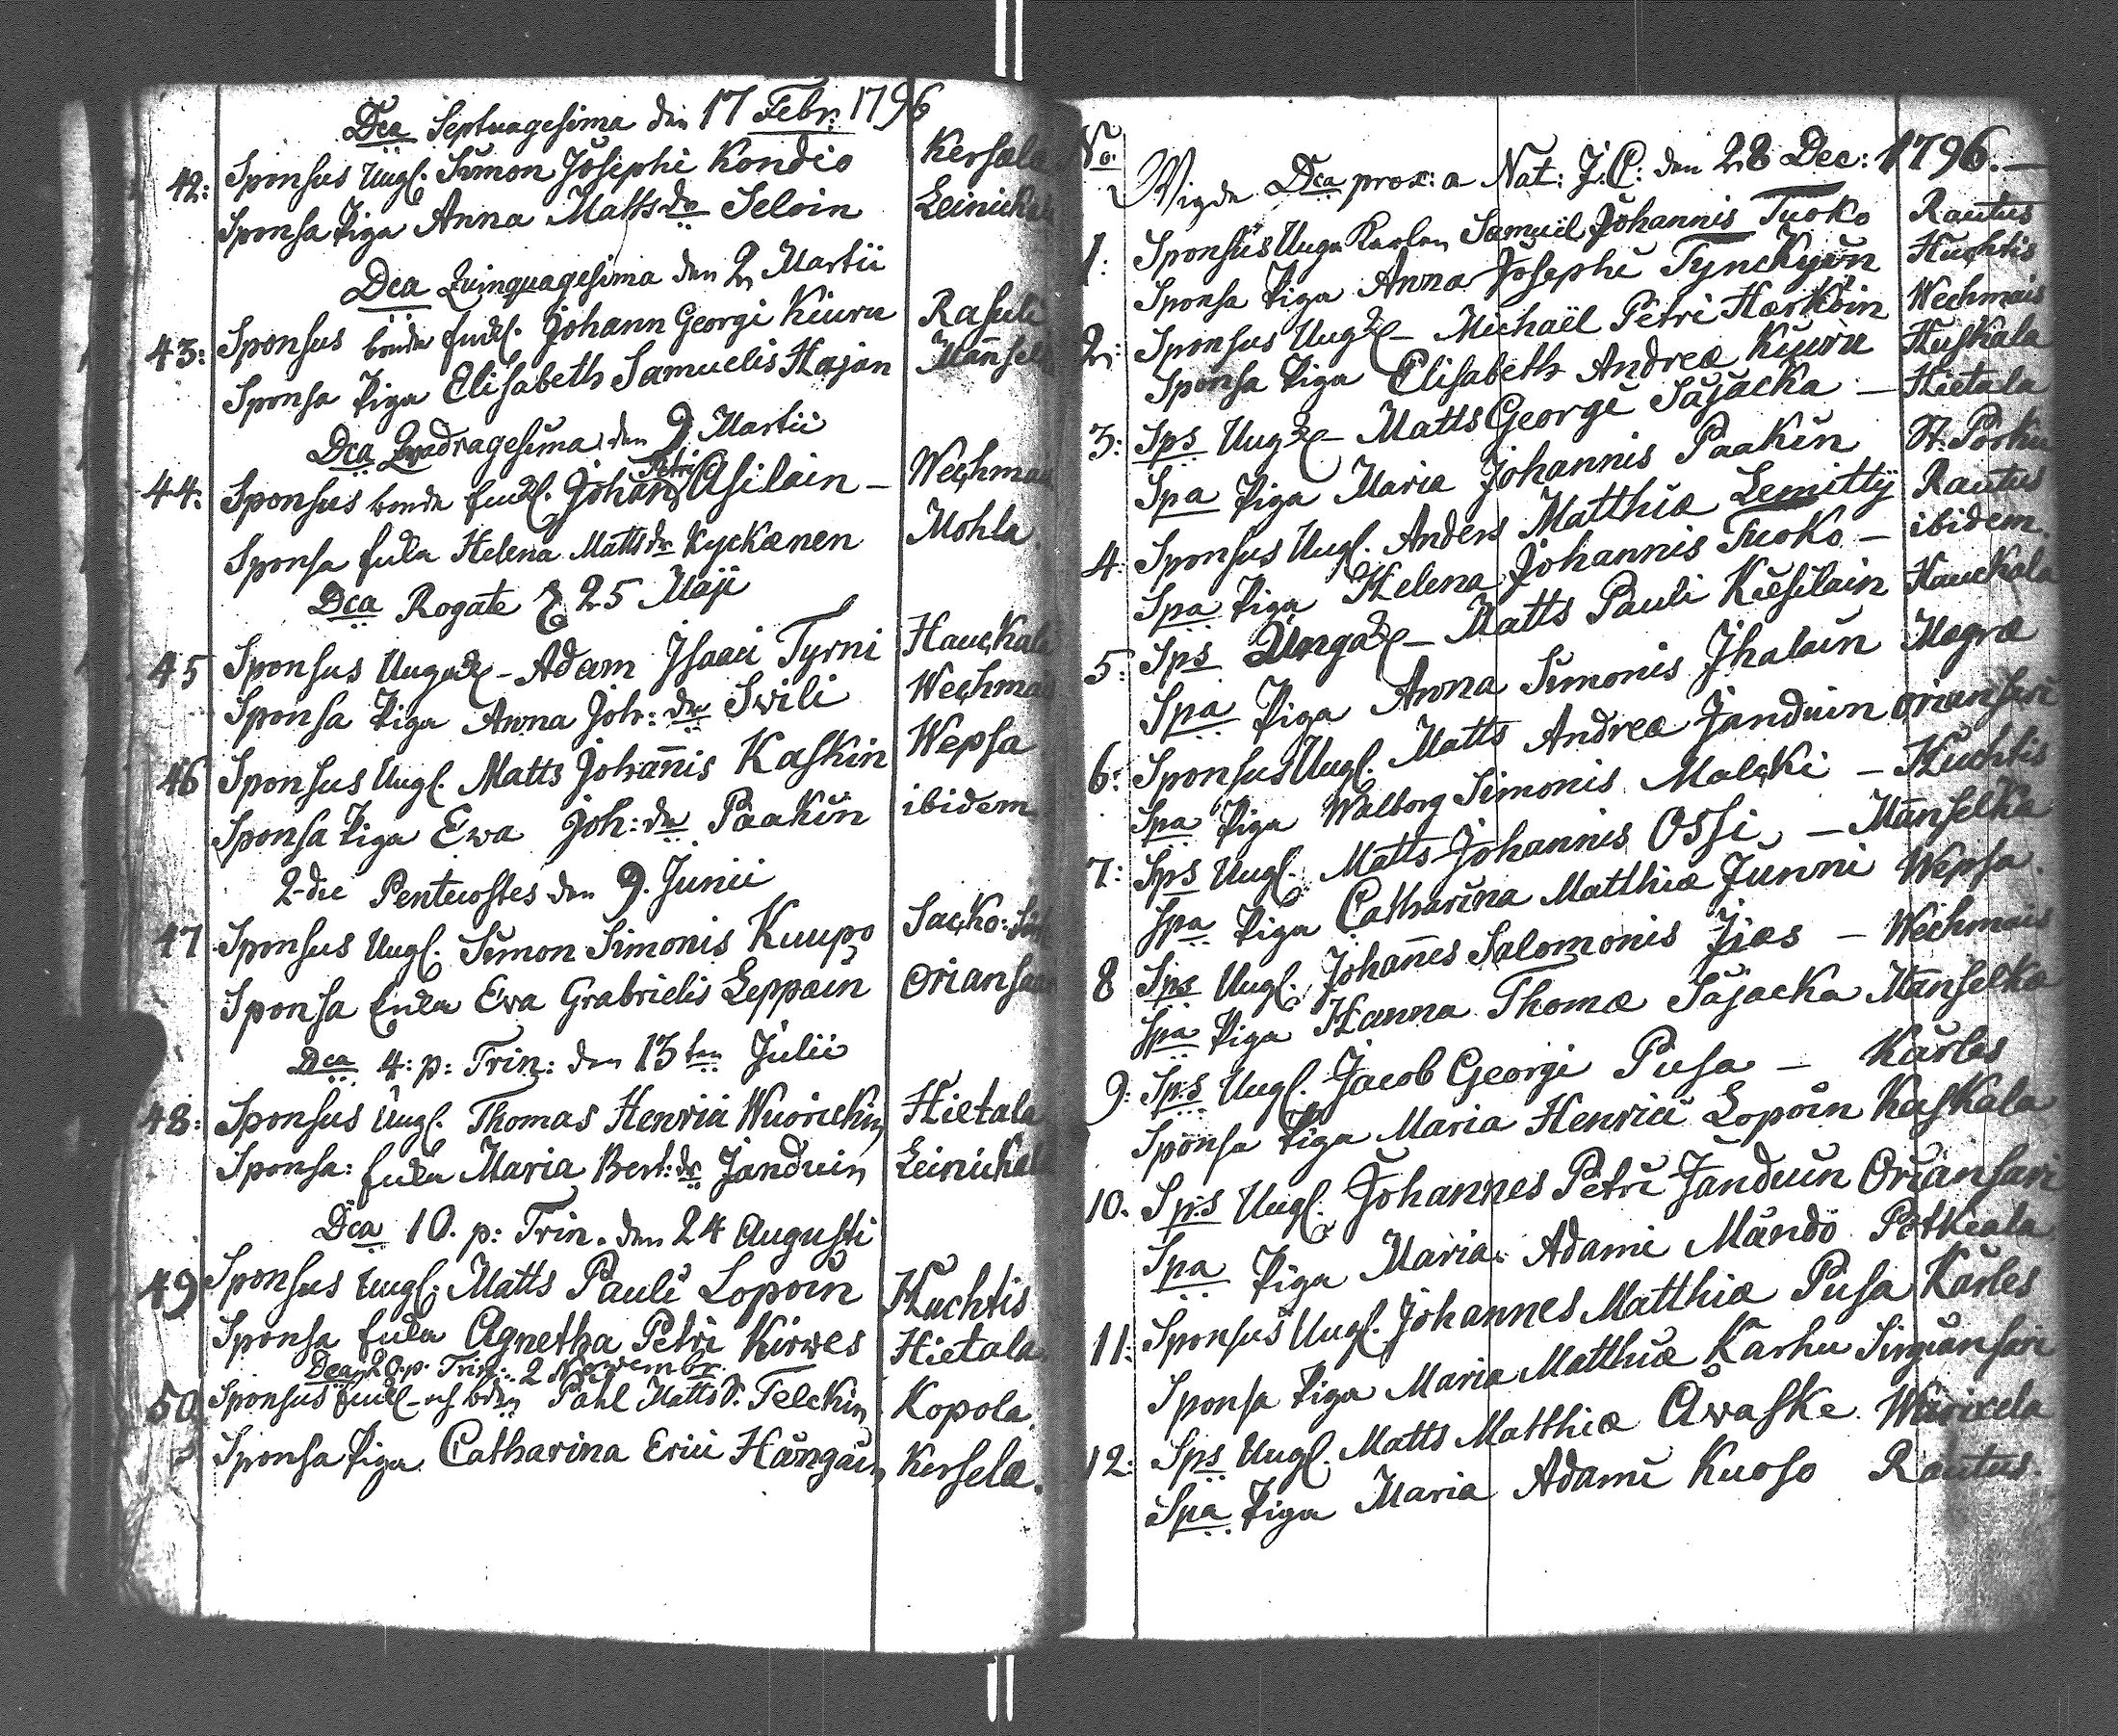 Dca Septuagesima den 17 Febr: 1796
42: Sponsus Ungl. Simon Josephi Kondio Kersæla
Sponsa Piga Anna Matts dr Seloin Leinickala
Dca Quinquagesima den 2 Martii
43: Sponsus bonde Enckl. Johann Georgi Kiuru Rasuli
Sponsa Piga Elisabeth Samuelis Hajan Mānselk
Dca Quadragesima den 9 Martii
44: Sponsus bonde Enckl. Johan Petri Asilain – Wechmais
Sponsa Enka Helena Matts dr Kyckænen Mohla.
Dca Rogate d 25 Maji
45 Sponsus Ungdk – Adam Isaaci Tyrni Hauckala
Sponsa Piga Anna Joh: dr Swili Wechmais
46 Sponsus Ungl. Matts Johan̄is Kaskin Wepsa
Sponsa Piga Ewa Joh: dr Paakin ibidem
2-die Pentecostes den 9. Junii
47 Sponsus Ungl. Simon Simonis Kuupo Sacko:
Sponsa Enka Eva Grabrielis Leppäin Oriansaari
Dca 4: p: Trin: den 13ten Julii
48: Sponsus Ungl. Thomas Henrici Wuorickin Hietala
Sponsa: Enka Maria Bert: dr Janduin Leinickala
Dca 10. p: Trin. den 24 Augusti
49 Sponsus Ungl. Matts Pauli Lopoin Huchtis
Sponsa Enka Agnetha Petri Kirwes Hietala
Dca 20. p. Trin: 2 Novembr
50 Sponsus Enkl – och bdn Påhl Matts S. Telckin Kopola.
Sponsa Piga Catharina Erici Hängäin Kerselæ.
No. Wigde Dca prox: a Nat: J. C: den 28 Dec: 1796. –
1: Sponsus Unga Karlen Samuel Johannis Tuoko Rautus
Sponsa Piga Anna Josephi Tynckyin Huchtis
2: Sponsus Ungdk – Michaël Petri Hærköin Wechmais
Sponsa Piga Elisabeth Andreæ Kiuru Huskala
3: Sps Ungdk – Matts Georgi Säjäckä – Hietala
Spa Piga Maria Johannis Paakin St: Porku
4: Sponsus Ungl. Anders Matthiæ Lemitty Rautus
Spa Piga Helena Johannis Tuoko – ibidem.
5: Sps Ungdk – Matts Pauli Kiesilain Hauckala
Spa Piga Anna Simonis Ihalain Magræ
6: Sponsus Ungl. Matts Andreæ Janduin Oriansari
Spa Piga Walborg Simonis Malcki – Huchtis
7: Sps Ungl. Matts Johannis Ossi – Mānselkä
Spa Piga Catharina Matthiæ Junni Wepsa.
8 Sps Ungl. Johan̄es Salomonis Ijæs – Wechmais
Spa Piga Hanna Thomæ Säjäckä Mānselkä
9: Sps Ungl. Jacob Georgi Pusa – Kārles
Sponsa Piga Maria Henrici Lopoin Kaskala
10. Sps Ungl. Johannes Petri Janduin Oriansari
Spa Piga Maria Adami Mändö Potkeala
11: Sponsus Ungl. Johannes Matthiæ Pusa Kārles
Sponsa Piga Maria Matthiæ Karhu Sirgiansari
12: Sps Ungl. Matts Matthiæ Awaske Warixela
Spa Piga Maria Adami Kuoso Rautus.